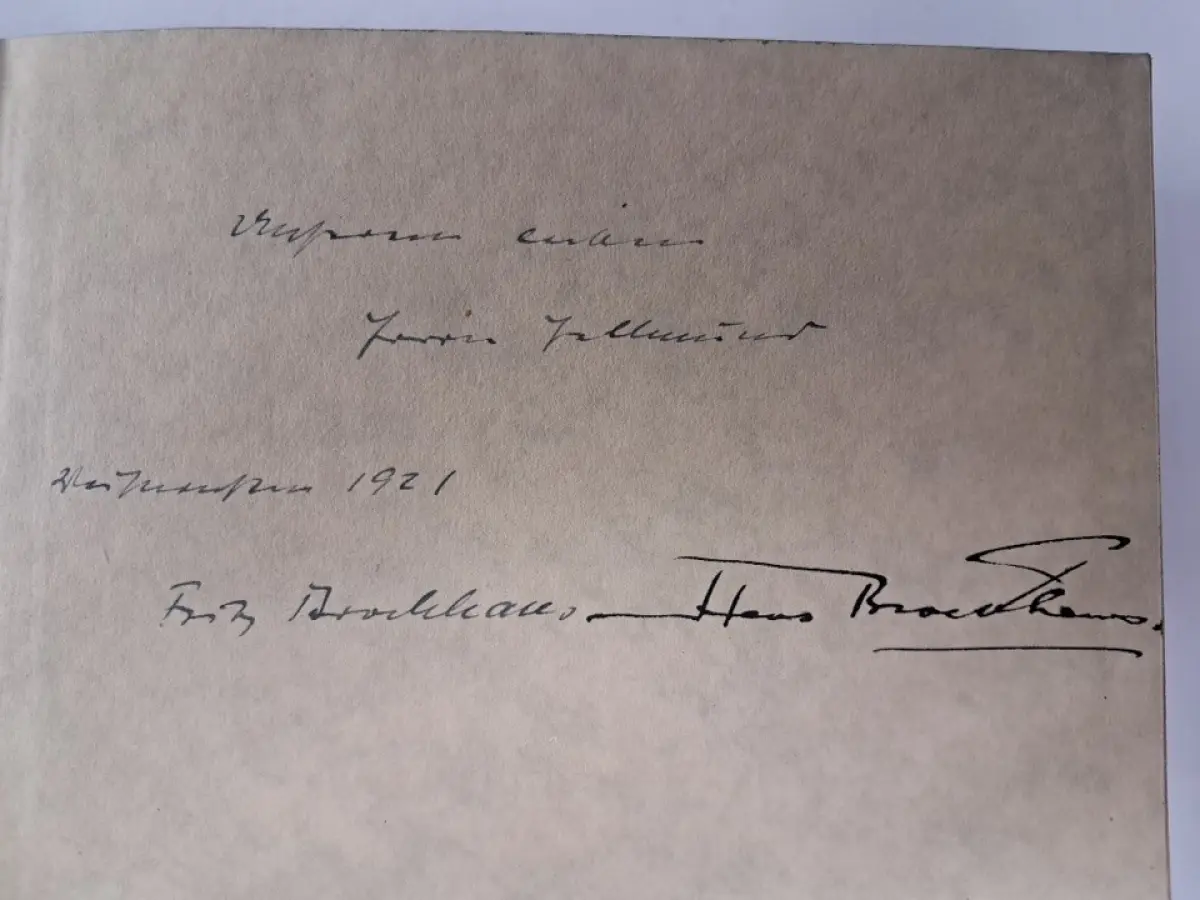 Unserem lieben
Herrn Hellmund
Weihnachten 1921
Fritz Brockhaus Hans Brockhaus.